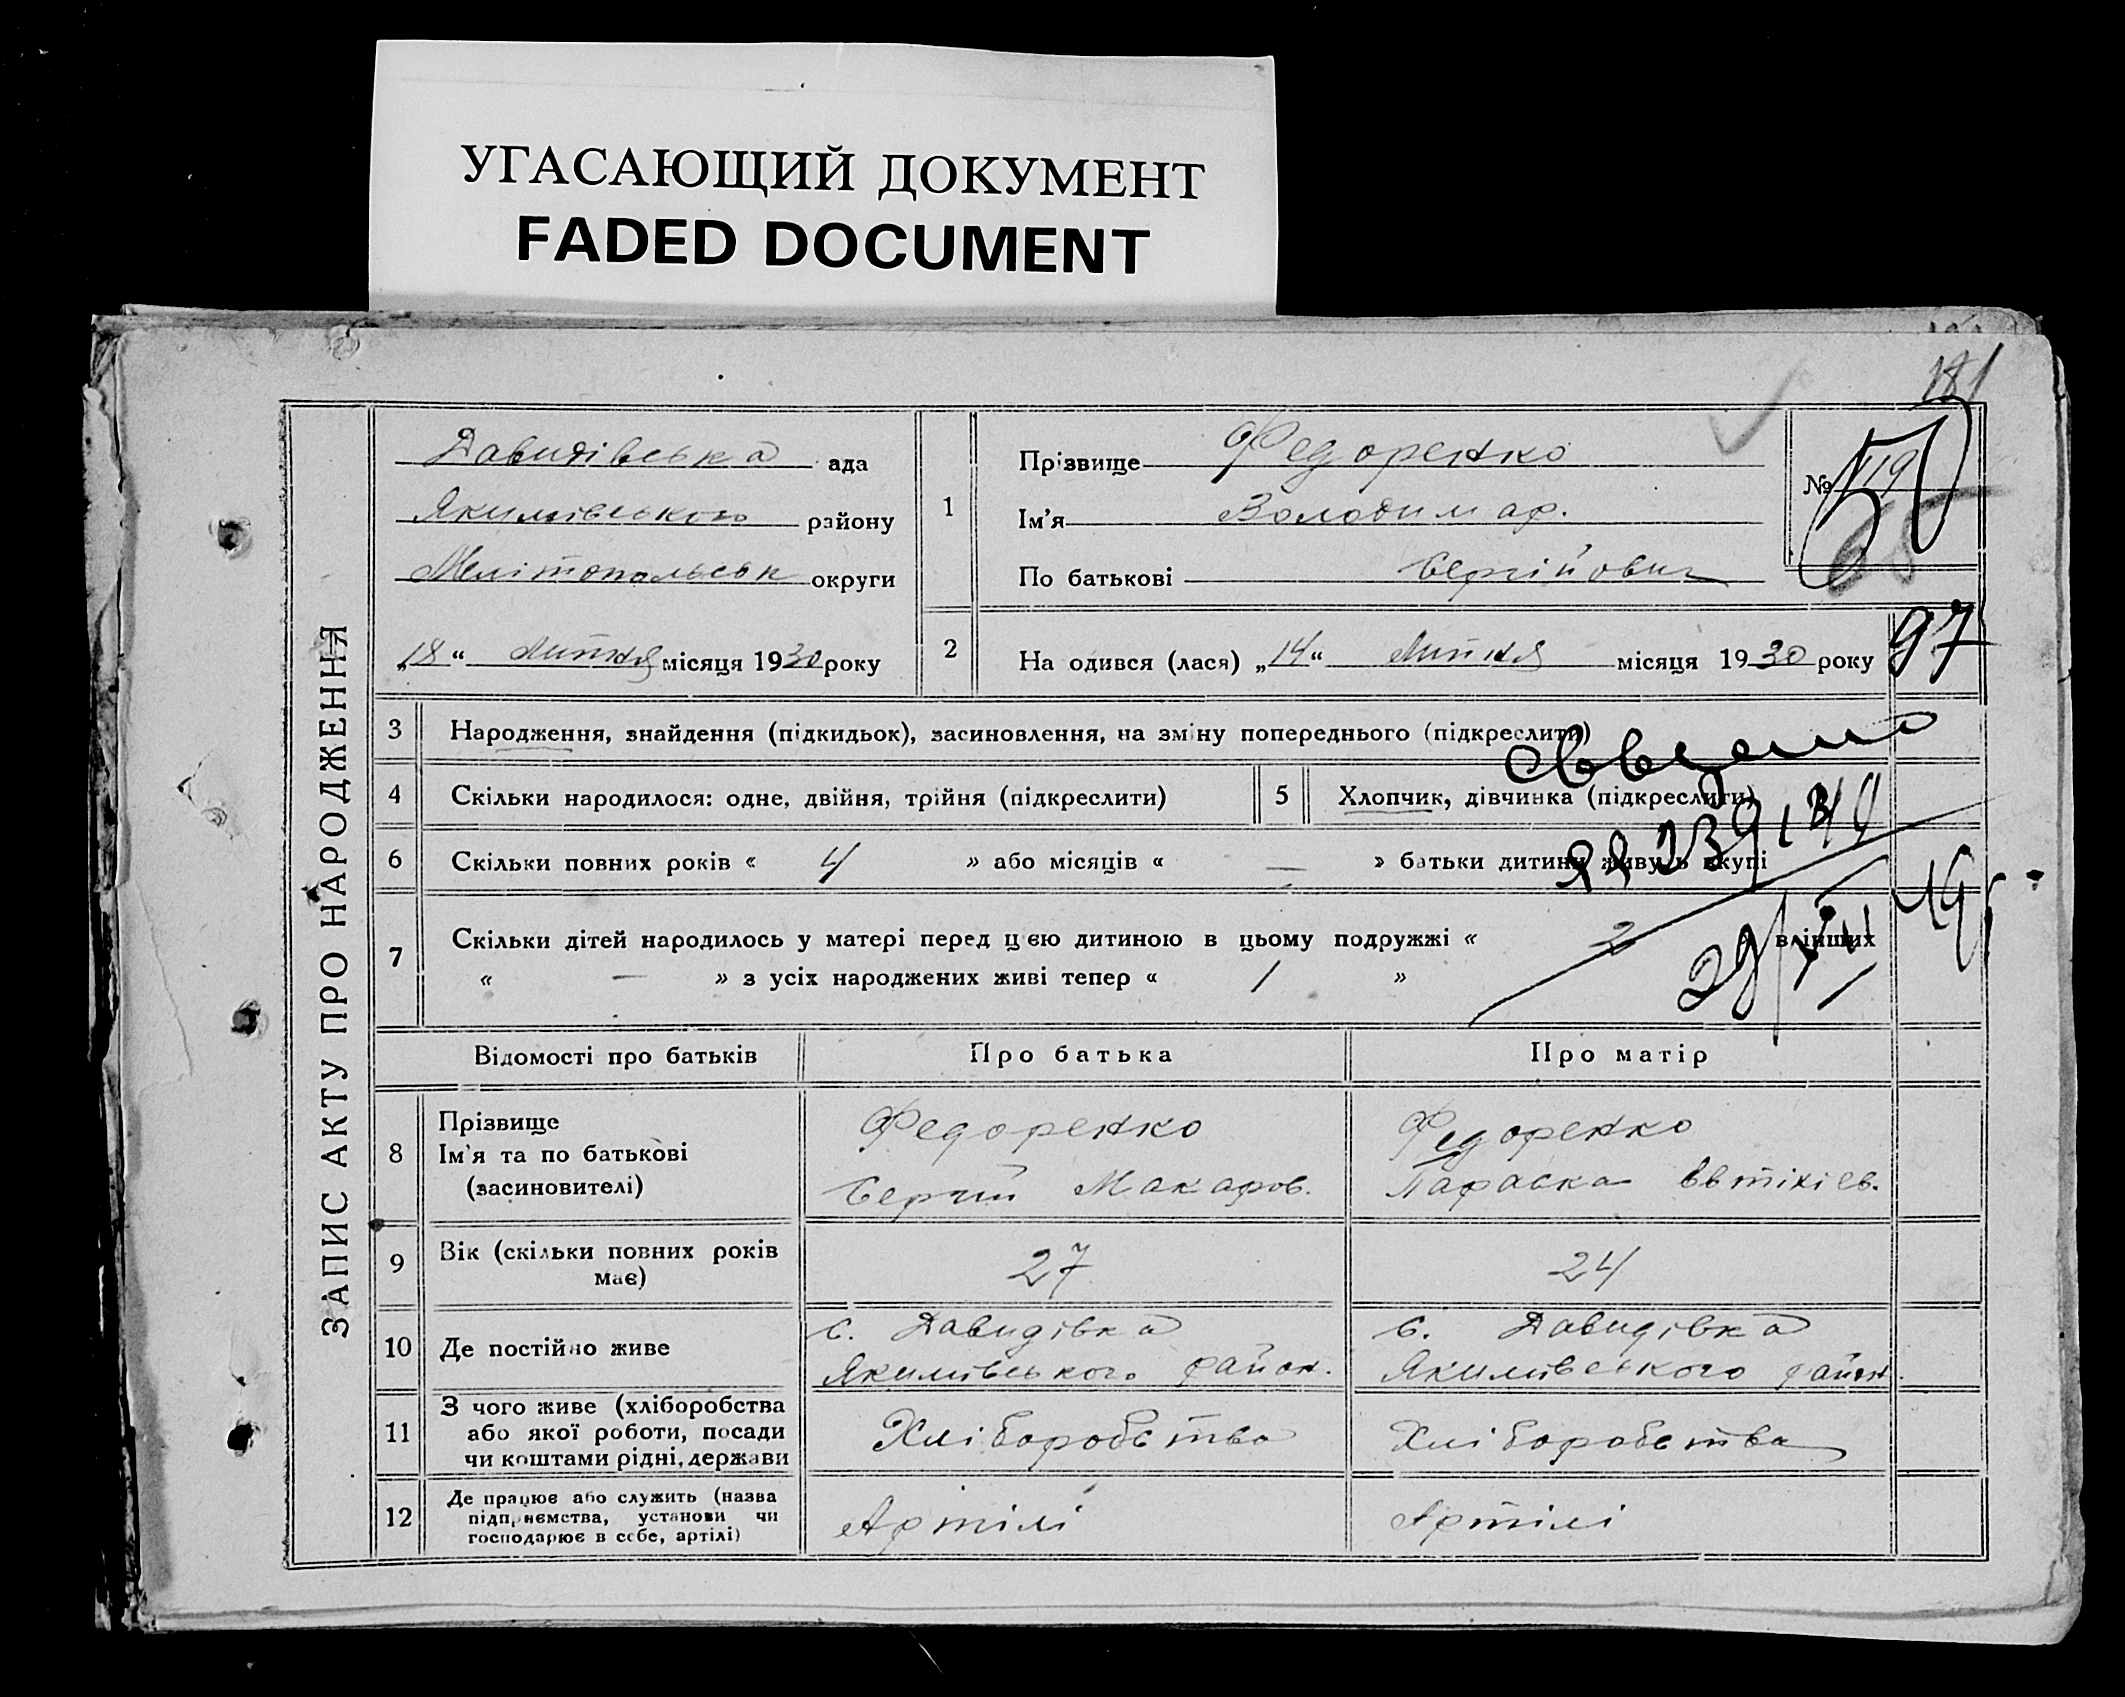 УГАСАЮЩИЙ ДОКУМЕНТ
FADED DOCUMENT
181
ЗАПИС АКТУ ПРО НАРОДЖЕННЯ
Давидівська ада
Якимівського району
Мелітопольськ округи
„18“ Липня місяця 1930 року
1
Прізвище Федоренко
Ім'я Володимар.
По батькові Сергійович
№ 119
50
65
97
2
На одився (лася) „14“ Липня місяця 1930 року
3 Народження, знайдення (підкидьок), засиновлення, на зміну попереднього (підкреслити)
4 Скільки народилося: одне, двійня, трійня (підкреслити)
5 Хлопчик, дівчинка (підкреслити)
6 Скільки повних років « 4 » або місяців « — » батьки дитини живуть вкупі
7 Скільки дітей народилось у матері перед цією дитиною в цьому подружжі « 2 в інших
« — » з усіх народжених живі тепер « 1 »
29/XII
Відомості про батьків Про батька Про матір
8
Прізвище
Ім'я та по батькові
(засиновителі)
Федоренко
Сергій Макаров.
Федоренко
Параска Евтіхіев.
9
Вік (скільки повних років
має)
27
24
10 Де постійно живе
с. Давидівка
Якимівського район.
с. Давидівка
Якимівського район
11
З чого живе (хліборобства
або якої роботи, посади
чи коштами рідні, держави
Хліборобства
Хліборобства
12
Де працює або служить (назва
підприємства, установи чи
господарює в себе, артілі)
Артілі
Артілі